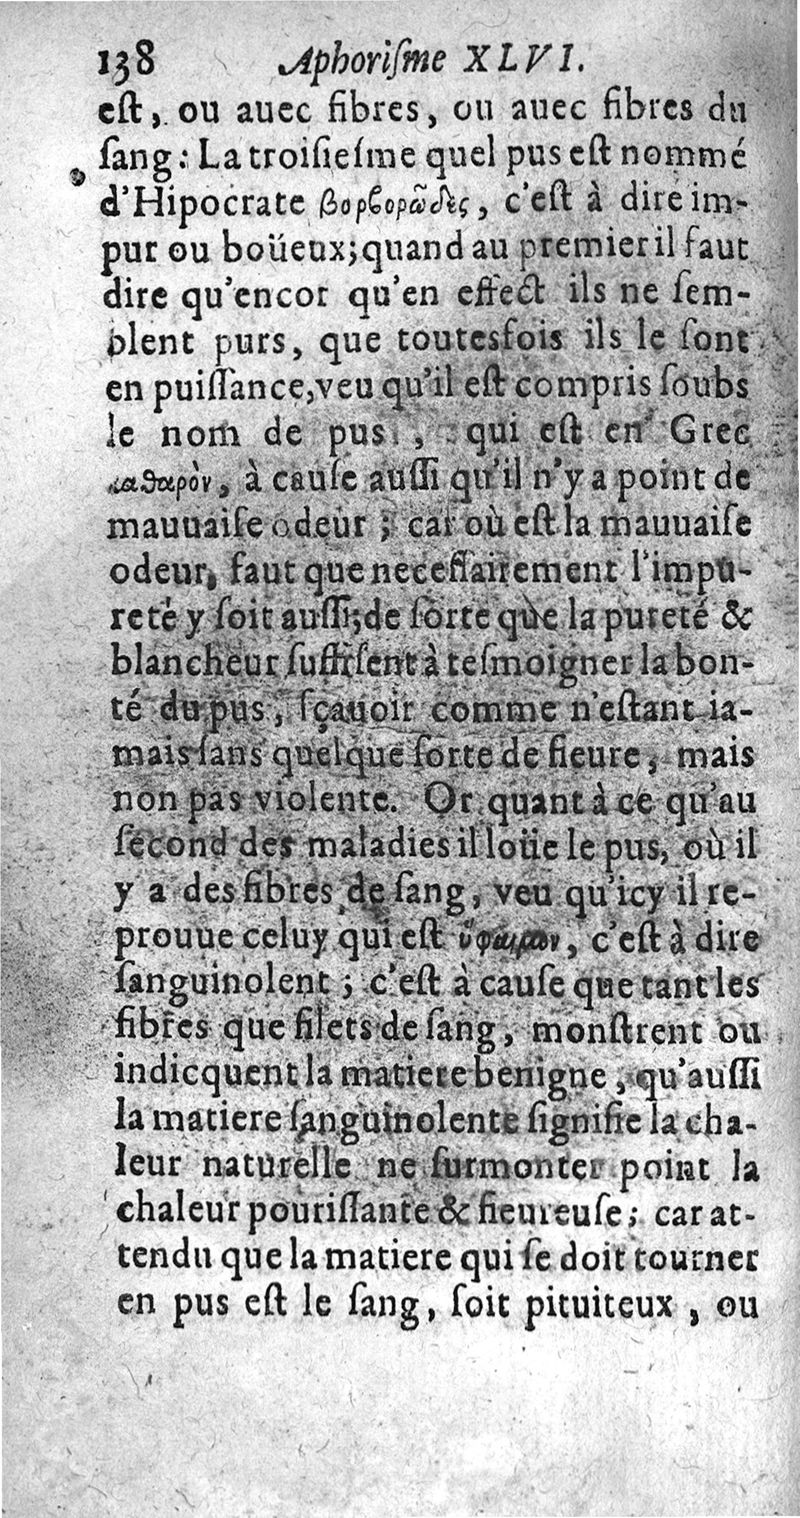 138 Aphoriſme XLVI.
eſt, ou auec fibres, ou auec fibres du
ſang: La troiſieſme quel pus eſt nommé
d'Hipocrate βορβορῶδες, c'eſt à dire im-
pur ou boüeux; quand au premier il faut
dire qu'encor qu'en effect ils ne ſem-
blent purs, que toutesfois ils le ſont
en puiſſance, veu qu'il eſt compris ſoubs
le nom de pus, qui eſt en Grec
καθαρὸν, à cauſe auſſi qu'il n'y a point de
mauuaiſe odeur; car où eſt la mauuaiſe
odeur, faut que neceſſairement l'impu-
reté y ſoit auſſi; de ſorte que la pureté &
blancheur ſuffiſent à teſmoigner la bon-
té du pus, ſçauoir comme n'eſtant ia-
mais ſans quelque ſorte de fieure, mais
non pas violente. Or quant à ce qu'au
ſecond des maladies il loüe le pus, où il
y a des fibres de ſang, veu qu'icy il re-
prouue celuy qui eſt ὕφαιμον, c'eſt à dire
ſanguinolent; c'eſt à cauſe que tant les
fibres que filets de ſang, monſtrent ou
indicquent la matiere benigne, qu'auſſi
la matiere ſanguinolente ſignifie la cha-
leur naturelle ne ſurmonter point la
chaleur pouriſſante & fieureuſe; car at-
tendu que la matiere qui ſe doit tourner
en pus eſt le ſang, ſoit pituiteux, ou